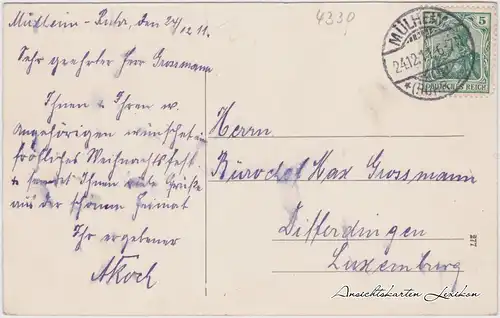 Mülheim-Ruhr, den 24/12 11.
4330
Sehr geehrter Herr Grossmann
Ihnen & Ihren w.
Angehörigen wünscht ein
fröhliches Weihnachtsfest
& sendet Ihnen viele Grüße
aus der schönen Heimat
Ihr ergebener
A Koch
MÜLHEIM
24.12.11
(RUHR)
5
DEUTSCHES REICH
Herrn
Bürochef Max Grossmann
Differdingen
Luxemburg
277
Ansichtskarten Lexikon